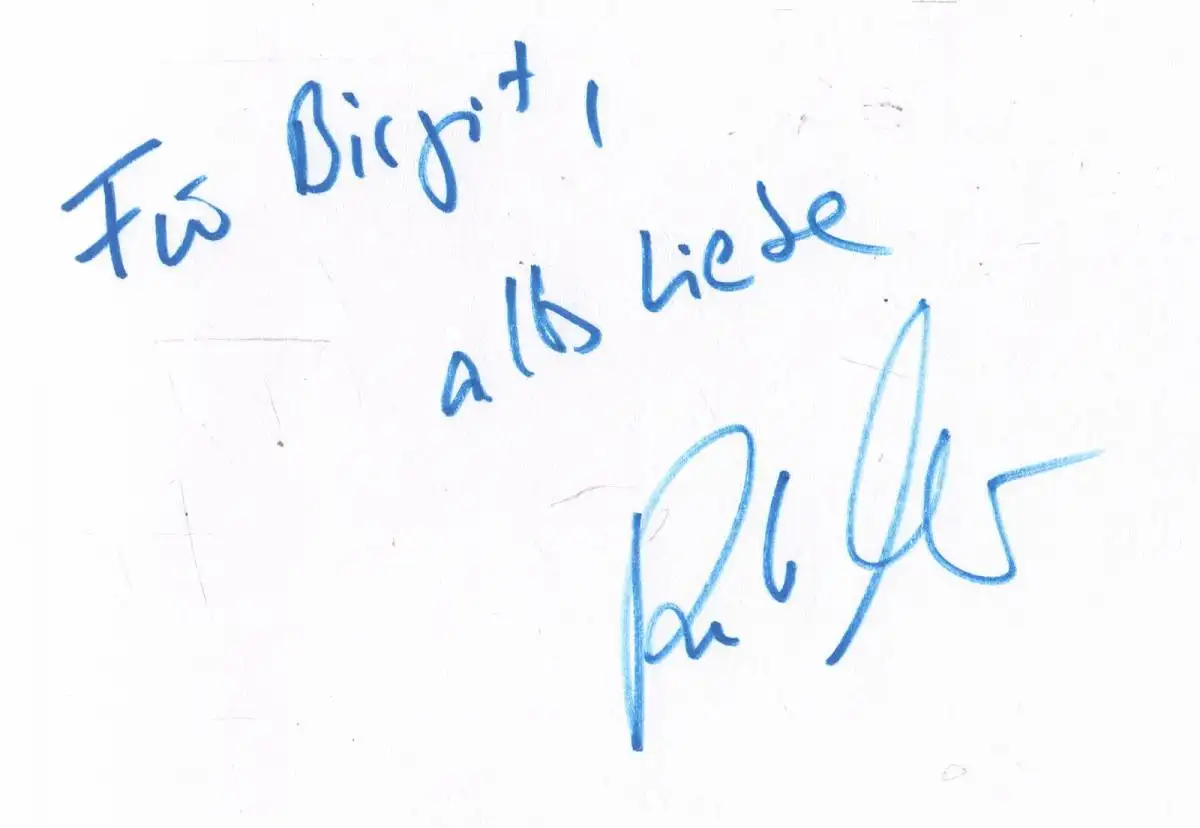 Für Birgit,
alles Liebe